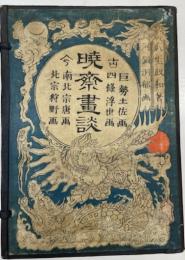 巨勢土佐画
古四條浮世画
曉齋畫談
今南北宗唐画
北宗狩野画